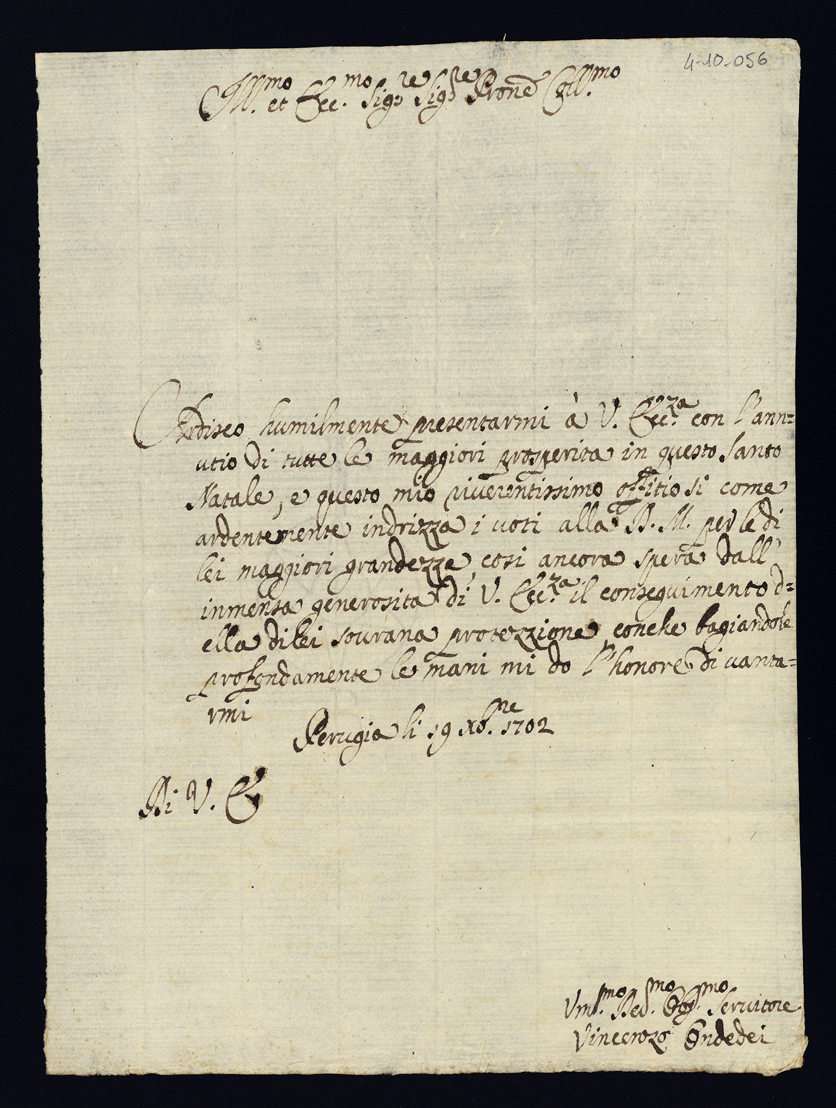 4-10-056
Ill.mo et Ecc.mo Sig.re Sig.re Prone Coll.mo
Ardisco humilmente presentarmi à V. Ecc.za con l'ann=
utio di tutte le maggiori prosperita in questo Santo
Natale, e questo mio riverentissimo offitio si come
ardentemente indrizza i voti alla D. M. per le di
lei maggiori grandezze cosi ancora spera dall'
inmensa generosita di V. Ecc.za il conseguimento d=
ella di lei sourana protezzione conche bagiandole
profondamente le mani mi do l'honore di uanta=
rmi
Perugia li 19 Xb.ne 1702
Di V. E
Vm.mo Dev.mo Obg.mo Seruitore
Vincenzo Ondedei